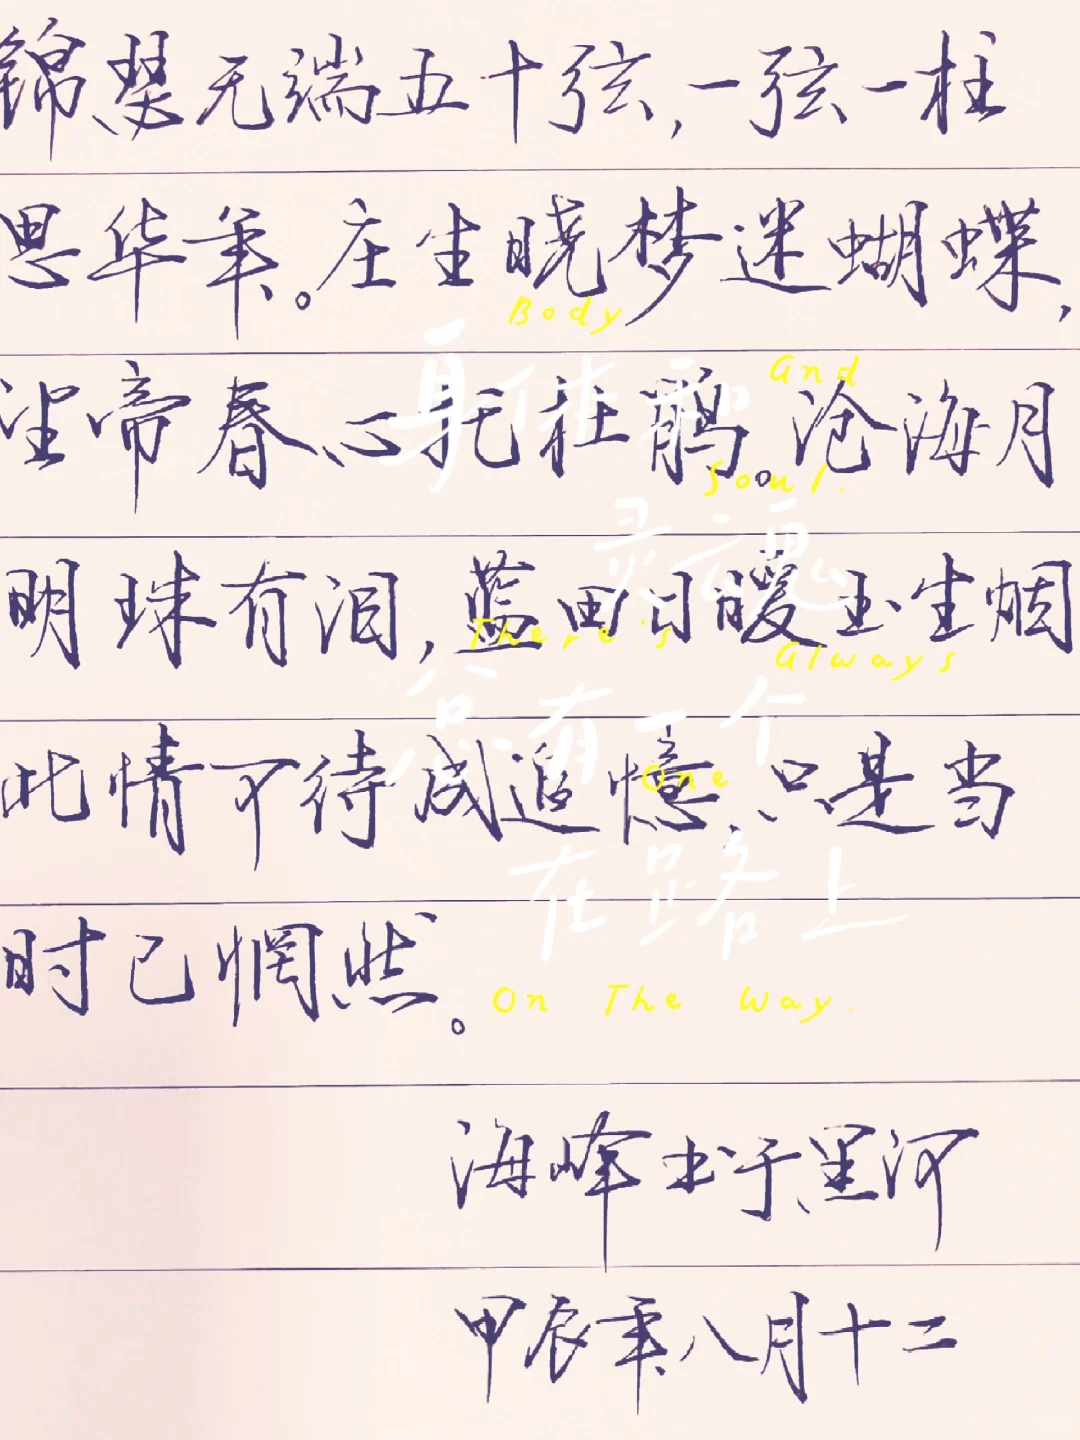 锦瑟无端五十弦,一弦一柱
思华年。庄生晓梦迷蝴蝶,
望帝春心托杜鹃。沧海月
明珠有泪,蓝田日暖玉生烟
此情可待成追憶,只是当
时已惘然。
海峰书于黑河
甲辰年八月十二
Body
身体和
And
Soul.
灵魂
There's
Always
总有一个
One
在路上
On The Way.